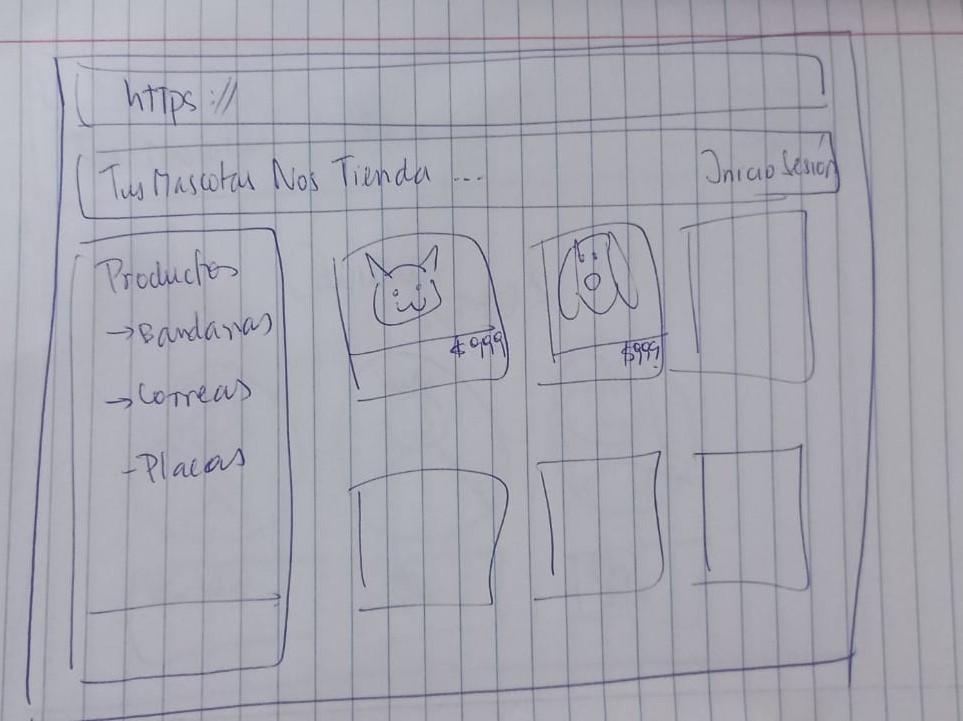 https://
Tus Mascotas Nos Tienda ... Inicio Sesión
Productos
→Bandanas
→Correas
-Placas
$999
$999